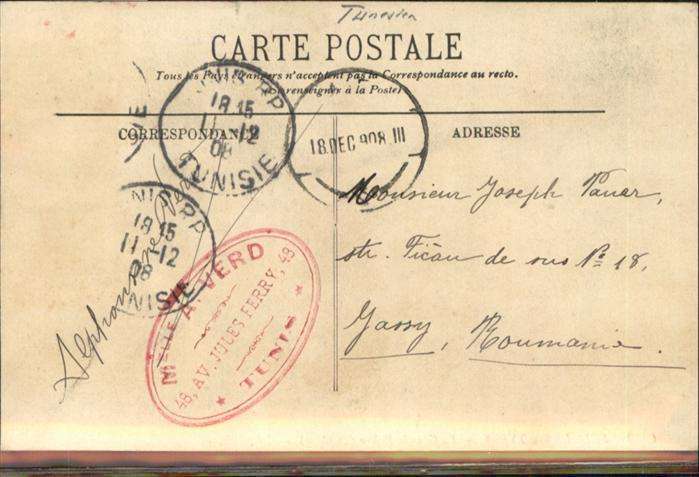 Tunesien
CARTE POSTALE
Tous les Pays étrangers n'acceptent pas la Correspondance au recto.
(Se renseigner à la Poste)
CORRESPONDANCE
ADRESSE
TUNIS RP
18 15
11-12
08
TUNISIE
18 DEC 908 III
SIE
TUNIS RP
18 15
11-12
08
TUNISIE
Monsieur Joseph
str. de sus No 18,
Jassy, Roumanie.
Alphonsine
MELLE A. VERD
48, AV. JULES FERRY, 48
TUNIS